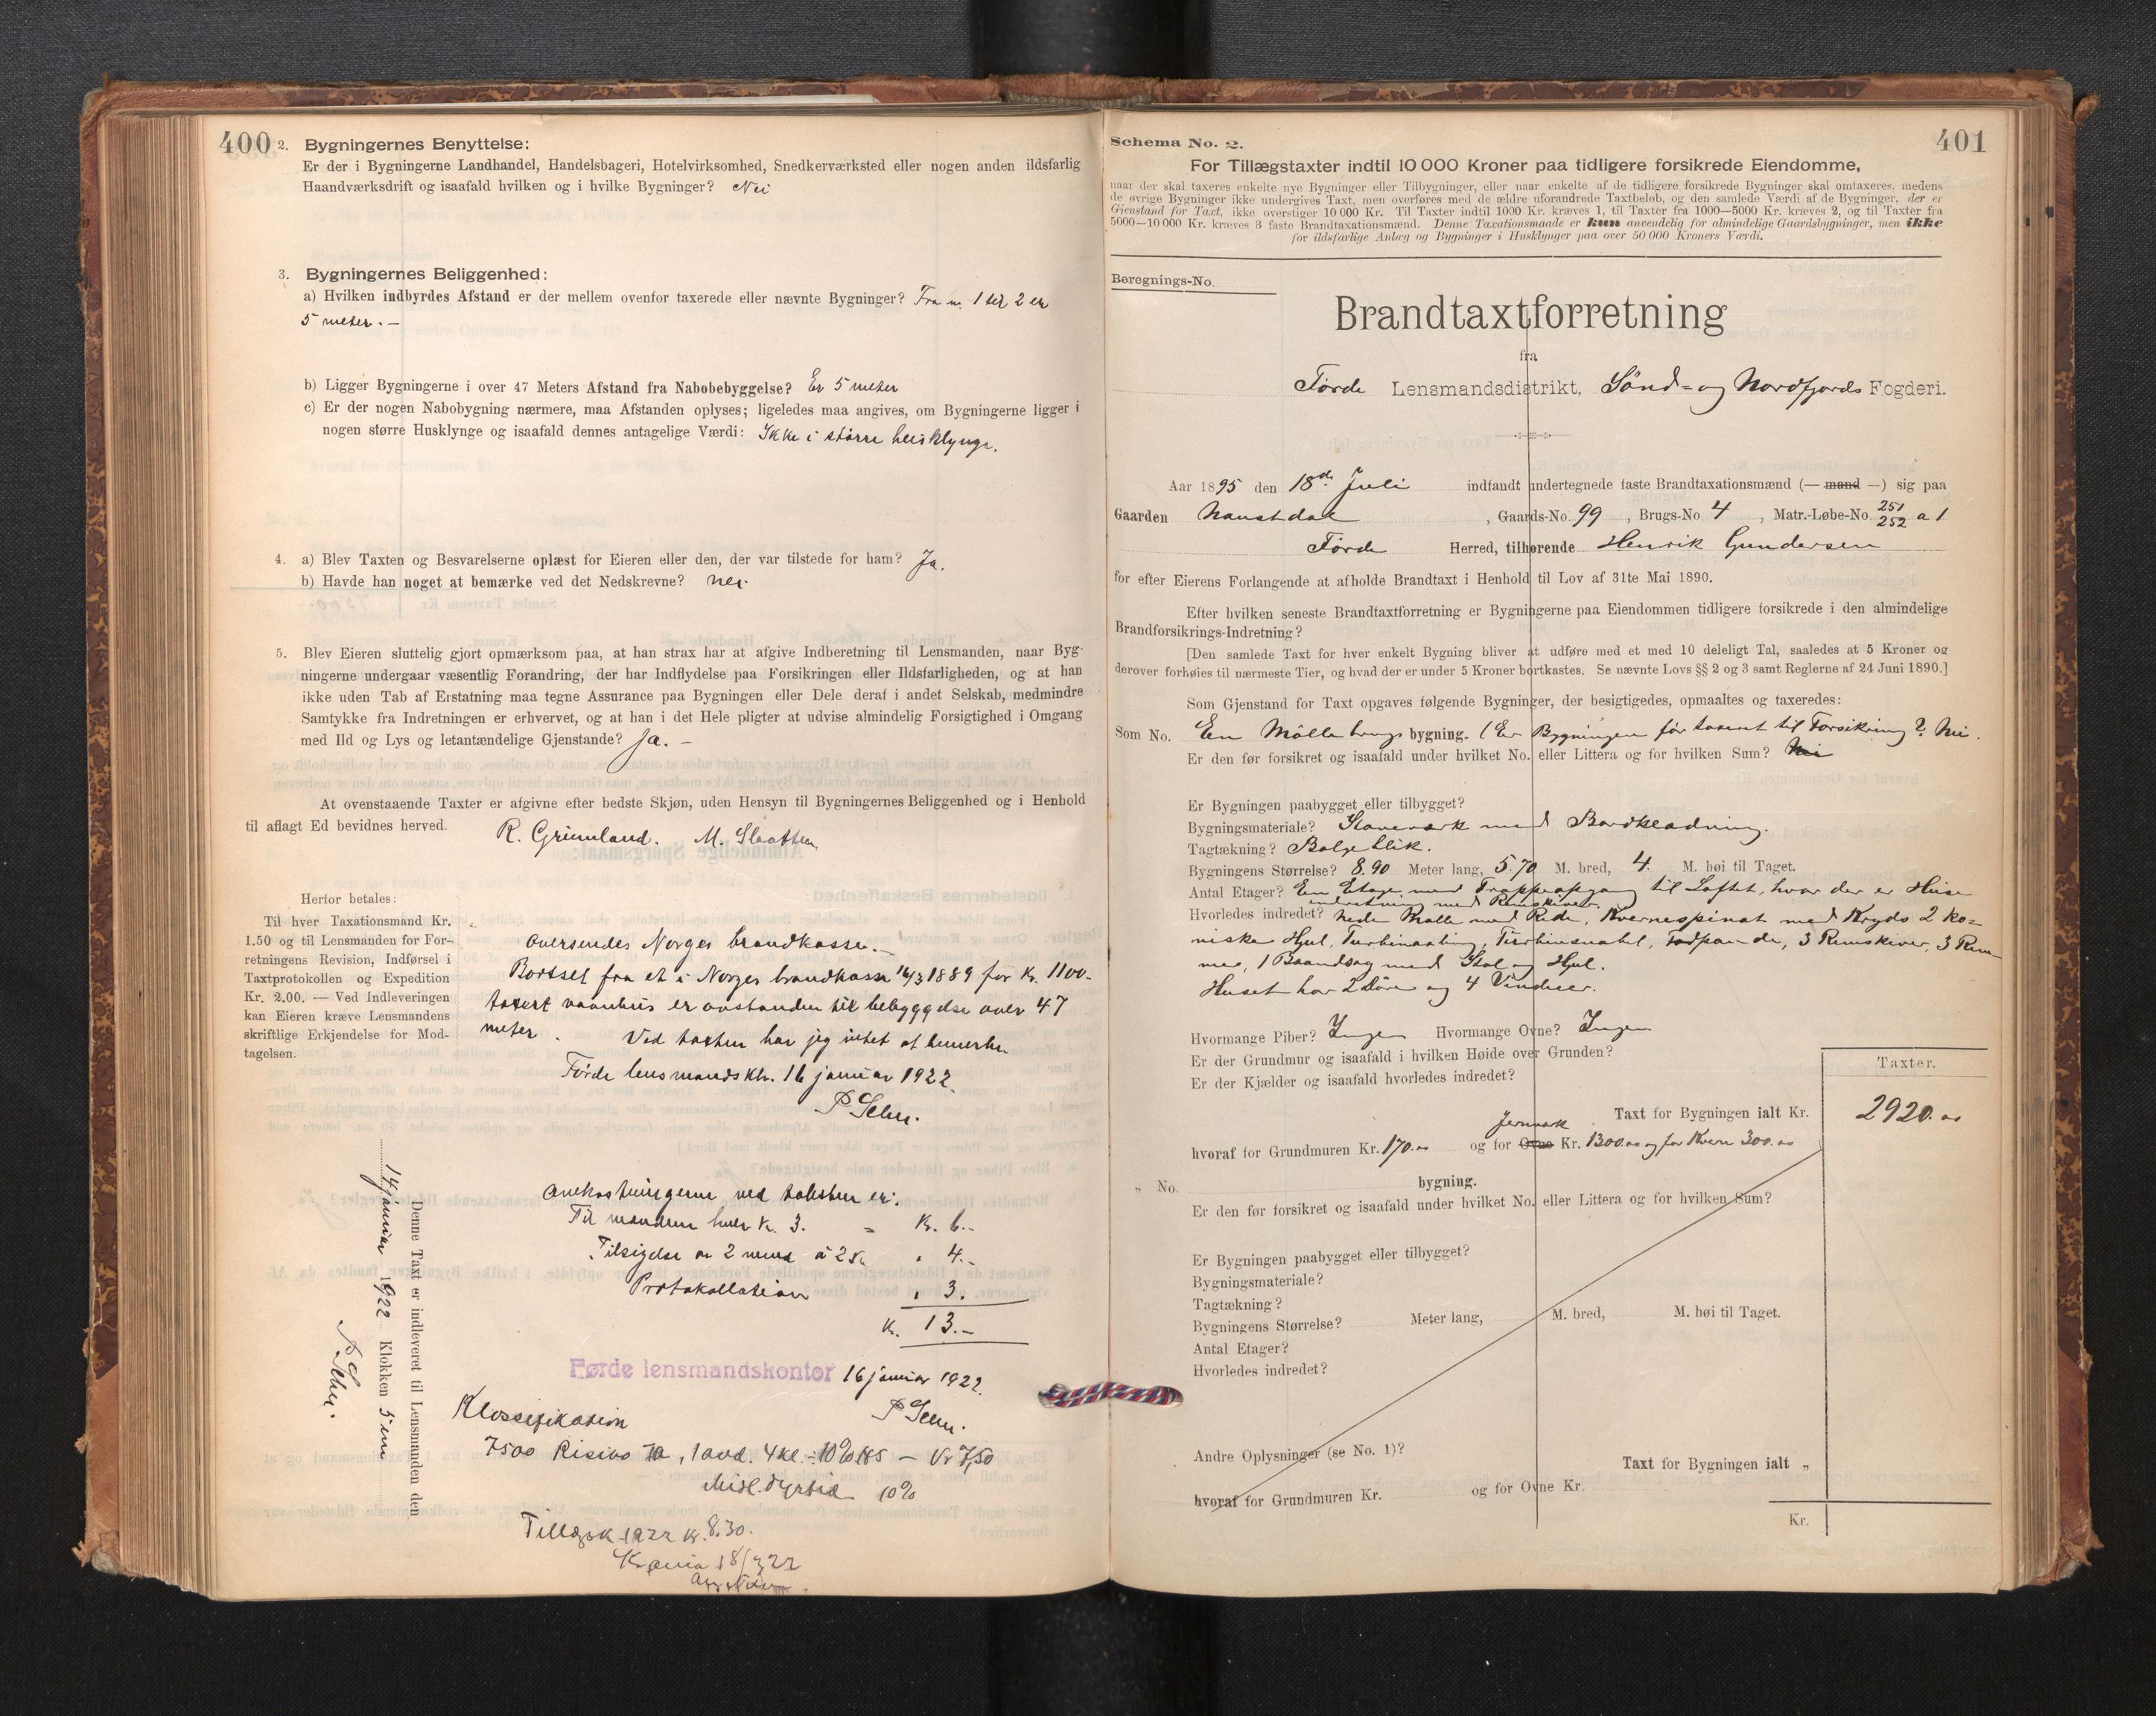 400
2. Bygningernes Benyttelse:
Er der i Bygningerne Landhandel, Handelsbageri, Hotelvirksomhed, Snedkerværksted eller nogen anden ildsfarlig
Haandværksdrift og isaafald hvilken og i hvilke Bygninger? Nei
3. Bygningernes Beliggenhed:
a) Hvilken indbyrdes Afstand er der mellem ovenfor taxerede eller nævnte Bygninger? Fra n. 1 til 2 er
5 meter. —
b) Ligger Bygningerne i over 47 Meters Afstand fra Nabobebyggelse? Er 5 meter
c) Er der nogen Nabobygning nærmere, maa Afstanden oplyses; ligeledes maa angives, om Bygningerne ligger i
nogen større Husklynge og isaafald dennes antagelige Værdi: Ikke i større husklynge.
4. a) Blev Taxten og Besvarelserne oplæst for Eieren eller den, der var tilstede for ham? Ja.
b) Havde han noget at bemærke ved det Nedskrevne? nei.
5. Blev Eieren sluttelig gjort opmærksom paa, at han strax har at afgive Indberetning til Lensmanden, naar Byg-
ningerne undergaar væsentlig Forandring, der har Indflydelse paa Forsikringen eller Ildsfarligheden, og at han
ikke uden Tab af Erstatning maa tegne Assurance paa Bygningen eller Dele deraf i andet Selskab, medmindre
Samtykke fra Indretningen er erhvervet, og at han i det Hele pligter at udvise almindelig Forsigtighed i Omgang
med Ild og Lys og letantændelige Gjenstande? Ja. —
At ovenstaaende Taxter er afgivne efter bedste Skjøn, uden Hensyn til Bygningernes Beliggenhed og i Henhold
til aflagt Ed bevidnes herved.
R. Grimland. M. Slaatten
Herfor betales:
Til hver Taxationsmand Kr.
1.50 og til Lensmanden for For-
retningens Revision, Indførsel i
Taxtprotokollen og Expedition
Kr. 2.00. — Ved Indleveringen
kan Eieren kræve Lensmandens
skriftlige Erkjendelse for Mod-
tagelsen.
Oversendes Norges brandkasse. —
Bortset fra et i Norges brandkasse 16/3 1889 for kr. 1100.
taxert vaanhus er avstanden til bebyggelse over 47
meter. Ved taxten har jeg intet at bemerke.
Førde lensmandsktr. 16 januar 1922.
Denne Taxt er indleveret til Lensmanden den
14 januar 1922 Klokken 5 em
Omkostningerne ved taksten er:
Til mændene hver kr. 3. = Kr. 6.-
Tilsigelse av 2 mænd à 2 kr. " 4.-
Protokollation " 3.
Kr. 13.—
Førde lensmandskontor 16 januar 1922.
Klassifikation
7500 Risiko 1a, 1 avd. 4 kl. ÷ 10%
Midl. dyrtid 10%
Tillægsk 1922 kr. 8.30.
Krania 18/3 22
401
Schema No. 2.
For Tillægstaxter indtil 10 000 Kroner paa tidligere forsikrede Eiendomme,
naar der skal taxeres enkelte nye Bygninger eller Tilbygninger, eller naar enkelte af de tidligere forsikrede Bygninger skal omtaxeres, medens
de øvrige Bygninger ikke undergives Taxt, men overføres med de ældre uforandrede Taxtbeløb, og den samlede Værdi af de Bygninger, der er
Gjenstand for Taxt, ikke overstiger 10 000 Kr. Til Taxter indtil 1000 Kr. kræves 1, til Taxter fra 1000—5000 Kr. kræves 2, og til Taxter fra
5000—10 000 Kr. kræves 3 faste Brandtaxationsmænd. Denne Taxationsmaade er kun anvendelig for almindelige Gaardsbygninger, men ikke
for ildsfarlige Anlæg og Bygninger i Husklynger paa over 50 000 Kroners Værdi.
Beregnings-No.
Brandtaxtforretning
fra
Førde Lensmandsdistrikt, Sønd- og Nordfjords Fogderi.
Aar 1895 den 18de Juli indfandt undertegnede faste Brandtaxationsmænd (— mand —) sig paa
Gaarden Naustdal, Gaards-No. 99, Brugs-No 4, Matr.-Løbe-No. 251 252 a 1
Førde Herred, tilhørende Henrik Gundersen
for efter Eierens Forlangende at afholde Brandtaxt i Henhold til Lov af 31te Mai 1890.
Efter hvilken seneste Brandtaxtforretning er Bygningerne paa Eiendommen tidligere forsikrede i den almindelige
Brandforsikrings-Indretning?
[Den samlede Taxt for hver enkelt Bygning bliver at udføre med et med 10 deleligt Tal, saaledes at 5 Kroner og
derover forhøies til nærmeste Tier, og hvad der er under 5 Kroner bortkastes. Se nævnte Lovs §§ 2 og 3 samt Reglerne af 24 Juni 1890.]
Som Gjenstand for Taxt opgaves følgende Bygninger, der besigtigedes, opmaaltes og taxeredes:
Som No. En Möllebrugs bygning. (Er Bygningen før taxeret til Forsikring? Nei.
Er den før forsikret og isaafald under hvilket No. eller Littera og for hvilken Sum? Nei
Er Bygningen paabygget eller tilbygget?
Bygningsmateriale? Staveværk med Bordklædning.
Tagtækning? Bølgeblik.
Bygningens Størrelse? 8.90 Meter lang, 5.70 M. bred, 4. M. høi til Taget.
Antal Etager? En Etage med Trappeopgang til Loftet, hvor der er Heise
indretning med Remskiver.
Hvorledes indredet? Nede Mølle med Ride, Kvernespinat med Kryds 2 ko-
niske Hjul, Turbinaxling, Turbinsnabel, Fodpande, 3 Remskiver, 3 Rem-
mer, 1 Baandsag med Stol og Hjul.
Huset har 2 Døre og 4 Vinduer.
Hvormange Piber? Ingen Hvormange Ovne? Ingen
Er der Grundmur og isaafald i hvilken Høide over Grunden?
Er der Kjælder og isaafald hvorledes indredet?
Taxter.
Taxt for Bygningen ialt Kr. 2920.00
Jernværk
hvoraf for Grundmuren Kr. 170.00 og for Ovne Kr. 1300.00 og for Kvern 300.00
„ No. bygning.
Er den før forsikret og isaafald under hvilket No. eller Littera og for hvilken Sum?
Er Bygningen paabygget eller tilbygget?
Bygningsmateriale?
Tagtækning?
Bygningens Størrelse? Meter lang, M. bred, M. høi til Taget.
Antal Etager?
Hvorledes indredet?
Andre Oplysninger (se No. 1)?
Taxt for Bygningen ialt „
hvoraf for Grundmuren Kr. og for Ovne Kr.
Kr.